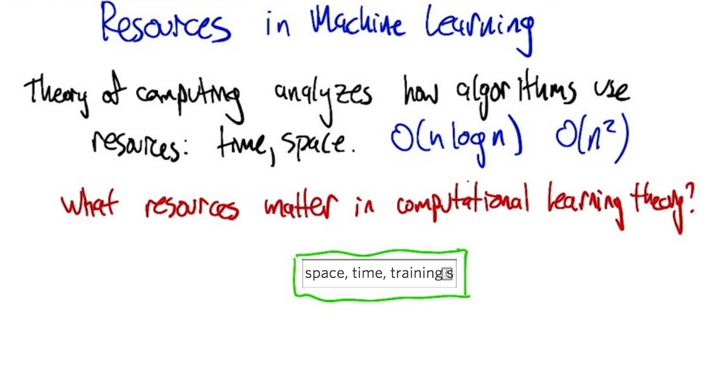 Resources in Machine Learning
Theory of computing analyzes how algorithms use
resources: time, space. O(n log n) O(n²)
What resources matter in computational learning theory?
space, time, training s